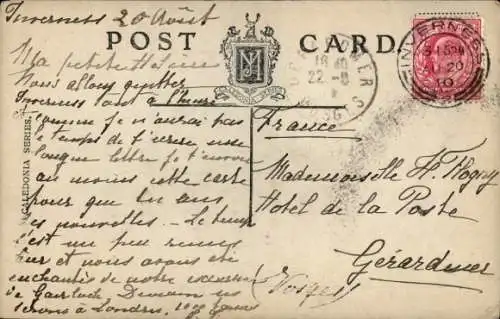 Inverness 20 Août
POST CARD
INVERNESS
20
10
GÉRARDMER
18
22 - 8
VOSGES
CALEDONIA SERIES.
Ma petite
Nous allons quitter
Inverness tout à l'heure
comme je n'aurai pas
le temps de t'écrire une
longue lettre je t'envoie
au moins cette carte
pour que tu aies
des nouvelles - Le temps
s'est un peu
et nous avons été
enchantés de notre excursion
de Gairloch Demain nous
serons à Londres.
France
Mademoiselle H. Flogny
Hotel de la Poste
Gérardmer
Vosges